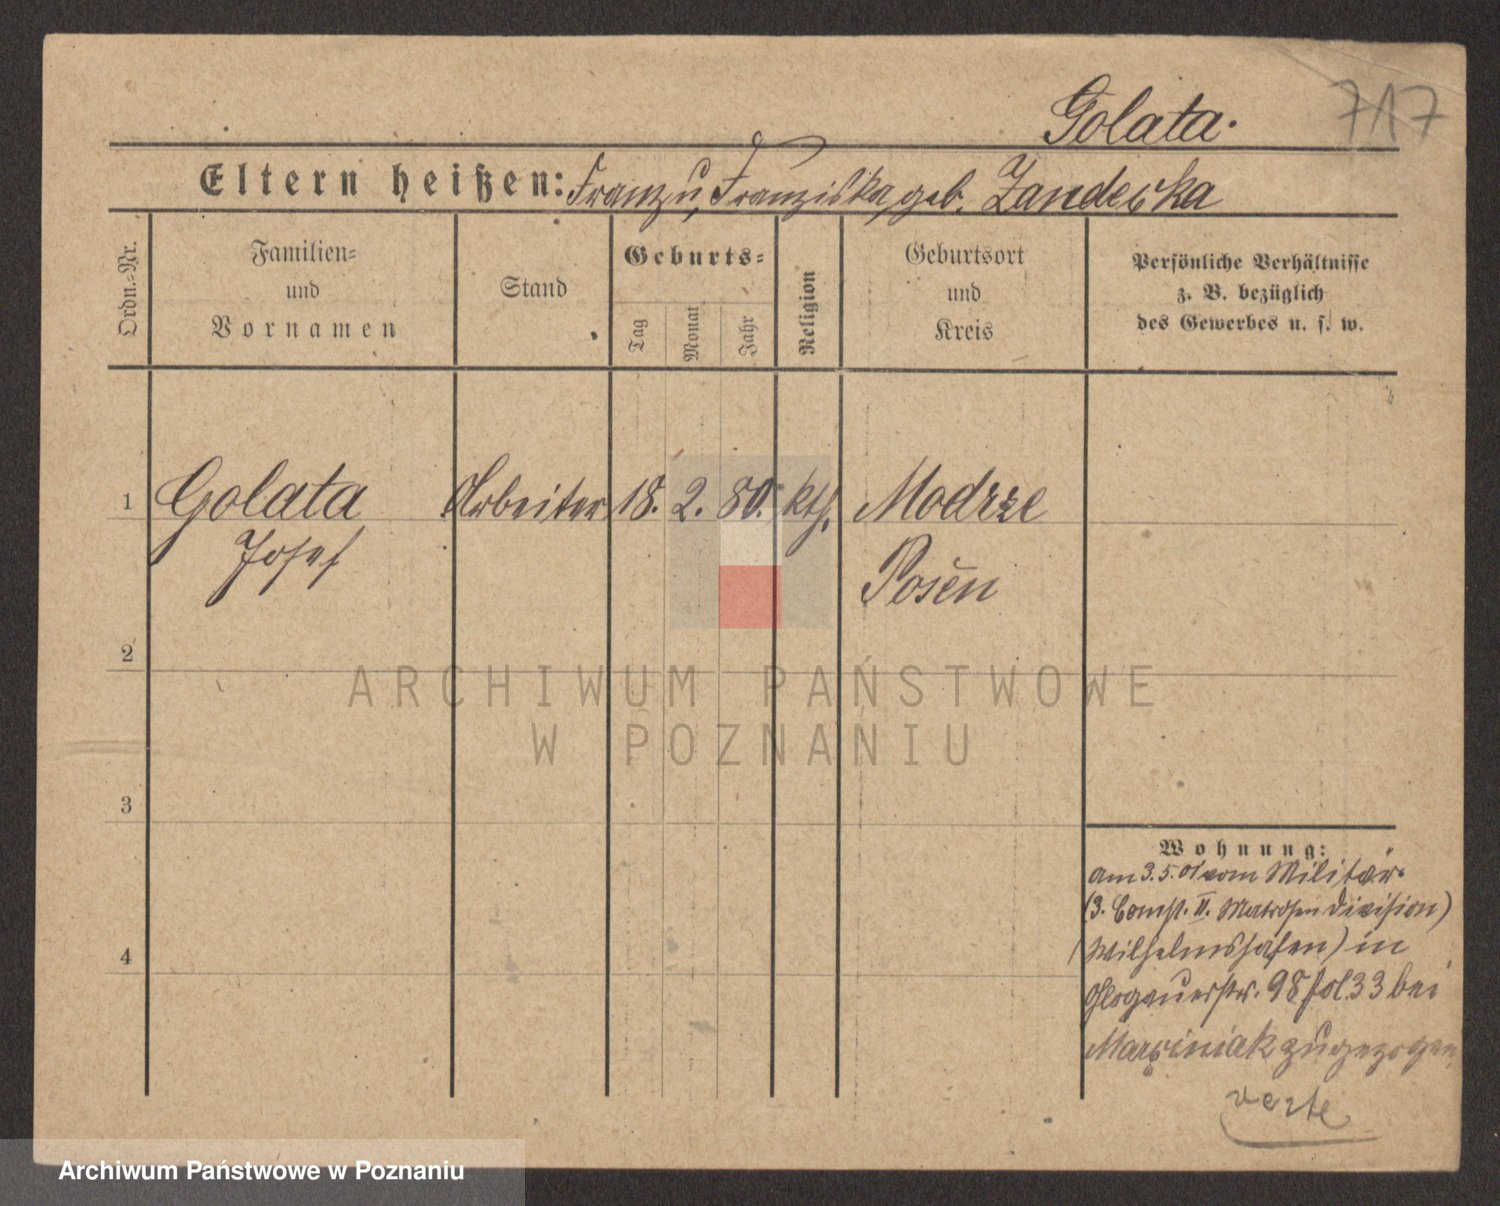 Golata.
717
Eltern heißen: Franz u. Franziska, geb. Zanderka
Ordn.-Nr.
Familien-
und
Vornamen
Stand
Geburts-
Tag
Monat
Jahr
Religion
Geburtsort
und
Kreis
Persönliche Verhältnisse
z. B. bezüglich
des Gewerbes u. s. w.
1 Golata Arbeiter 18. 2. 80. kth. Modrze
Josef Posen
2
ARCHIWUM PAŃSTWOWE
W POZNANIU
3
Wohnung:
am 3.5.01 vom Militär
(3. Comp. II. Matrosen Division)
(Wilhelmshafen) in
Glogauerstr. 98 fol. 33 bei
4
Marciniak zugezogen
verte
Archiwum Państwowe w Poznaniu